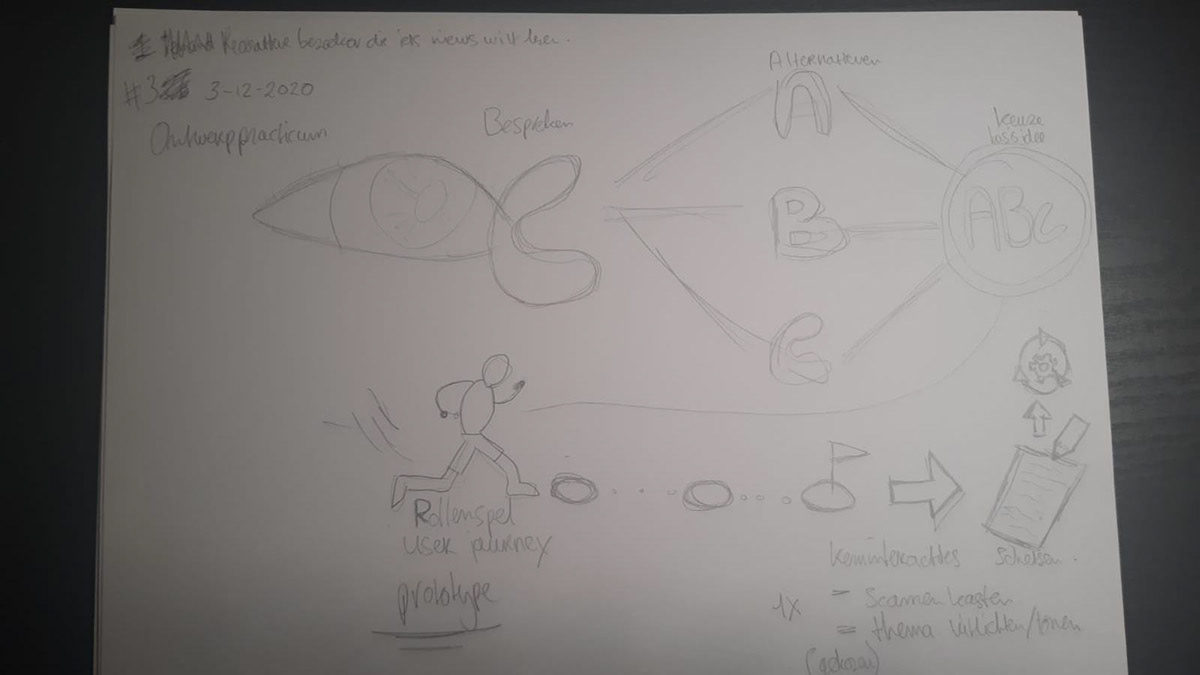 bezoeker die iets nieuws wilt leren.
#3 3-12-2020
Ontwerppracticum
Bespreken
Alternatieven
A
B
C
keuze
ABC
Rollenspel
user journey
prototype
Kerninteracties
Schetsen.
1x
= Scannen kasten
= thema uitlichten/tonen
(gekozen)